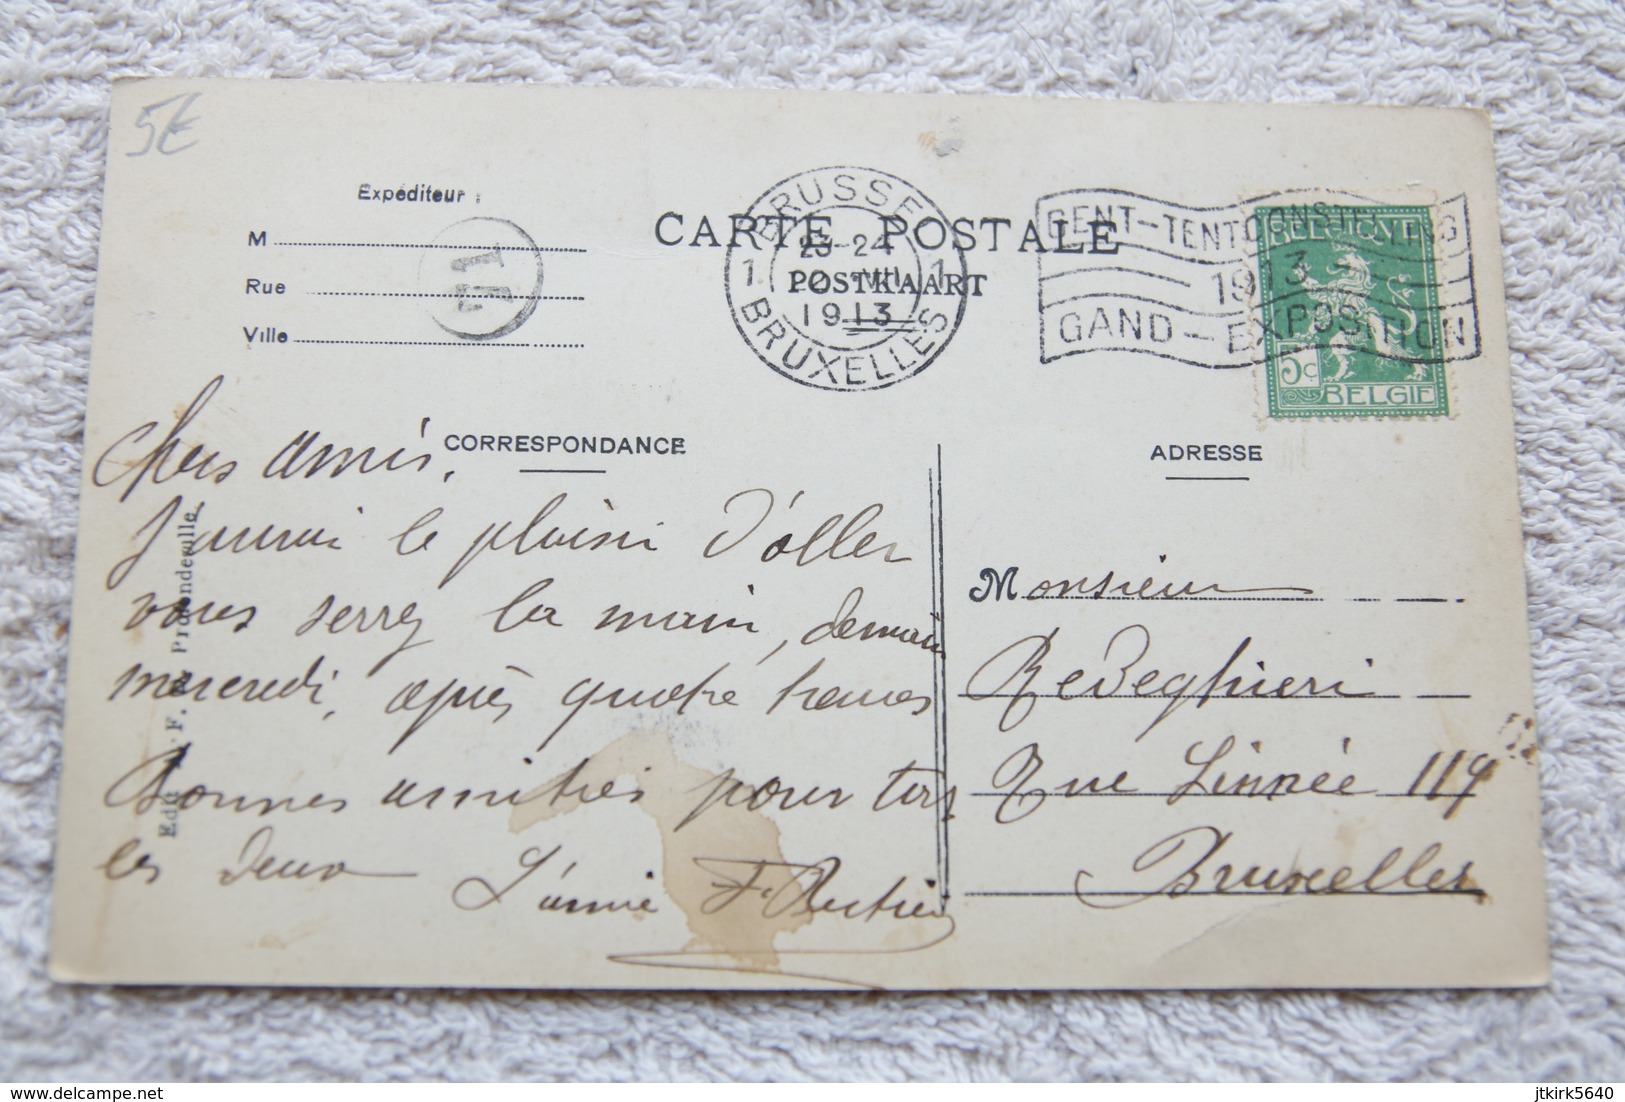 5€
Expéditeur :
M
Rue
Ville
CARTE POSTALE
POSTKAART
1 BRUSSEL 1
23-24
1913
BRUXELLES
GENT-TENTOONSTELLING
1913
GAND-EXPOSITION
BELGIQUE
5c
BELGIE
CORRESPONDANCE
Chers amis,
J'aurai le plaisir d'aller
vous serrez la main, demain
mercredi, après quatre heures
Bonnes amitiés pour tous
les deux
L'amie F.
ADRESSE
Monsieur
Rue Linnée 119
Bruxelles
delcampe.net
jtkirk5640